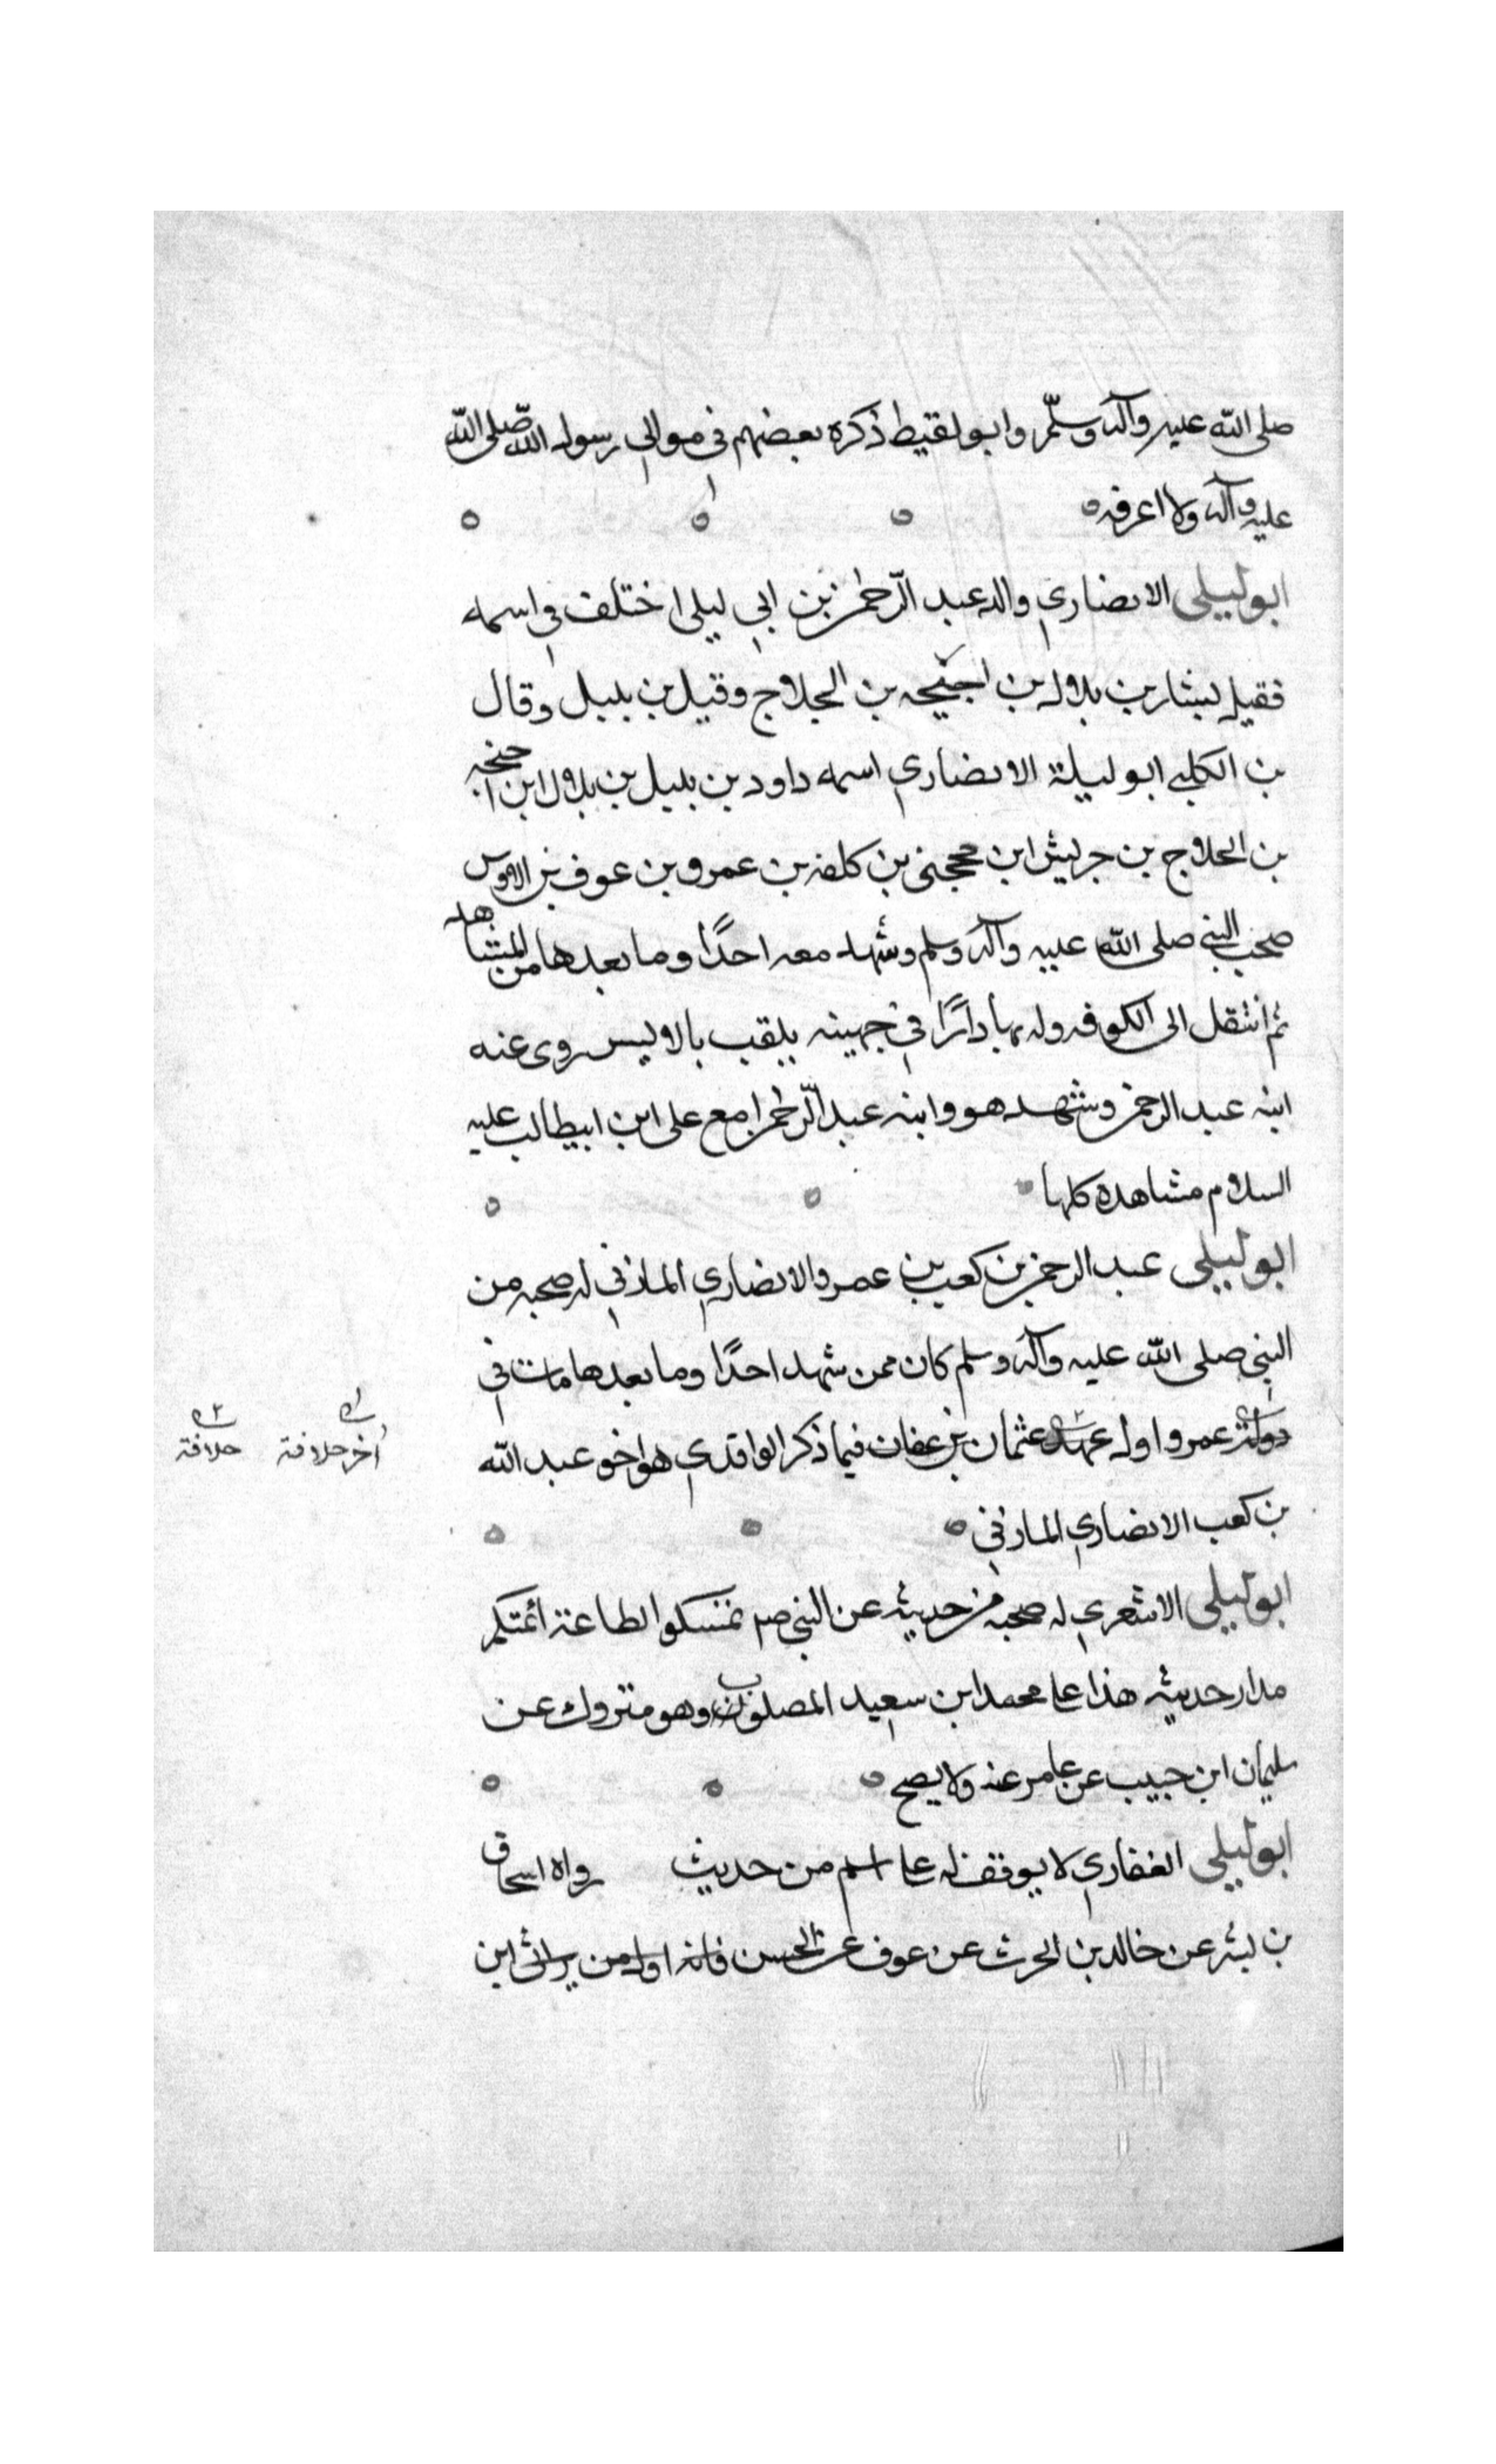 صلى الله عليه وآله وسلّم وابو لقيط ذكره بعضهم في موالي رسول الله صلى الله
عليه وآله ولا اعرفه
ابو ليلى الانصاري والد عبد الرّحمن بن ابي ليلى اختلف في اسمه
فقيل يشار بن بلال بن اجيحه بن الجلاج وقيل بن بليل وقال
بن الكلبي ابو ليلة الانصاري اسمه داود بن بليل بن بلال ابن
بن الحلاج بن جريش ابن محجنى بن كلفه بن عمرو بن عوف بن الاوس
صحب النبي صلى الله عليه وآله وسلم وشهد معه احدًا وما بعدها من المشاهد
ثم انتقل الى الكوفه وله بها دارًا في جهينه يلقب بالاليس روى عنه
ابنه عبد الرحمن وشهد هو وابنه عبد الرّحمن مع على ابن ابيطالب عليه
السلام مشاهده كلها
ابو ليلى عبد الرحمن بن كعب بن عمرو الانصاري المازني له صحبه من
النبي صلى الله عليه وآله وسلم كان ممن شهد احدًا وما بعدها مات في
دولة عمر واول عهد عثمان بن عفان فيما ذكر الواقدي هو اخو عبد الله
آخر خلافة خلافة
بن كعب الانصاري المازني
ابو ليلى الاشعري له صحبه من حديثه عن النبي صم تمسكوا لطاعة أئمتكم
مدار حديثه هذا عا محمد ابن سعيد المصلوب وهو متروك عن
سليمان ابن حبيب عن عامر عنه ولا يصح
ابو ليلى الغفاري لا يوقف له عا اسم من حديث رواه اسحاق
بن بشر عن خالد بن الحرث عن عوف عن الحسن فانه اول من ابن